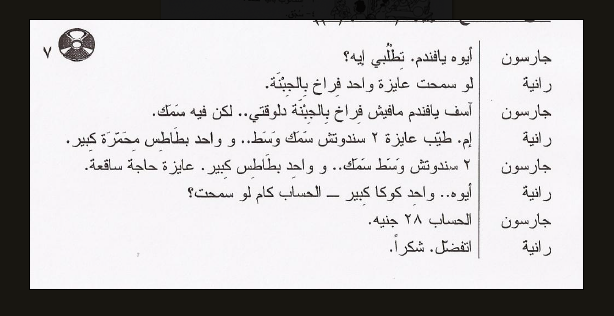 ٧
جارسون أيوه يافندم. تِطْلُبي إيه؟
رانية لو سمحت عايزة واحد فِراخ بِالجِبْنَة.
جارسون آسف يافندم مافيش فِراخ بِالجِبْنَة دلوقتي.. لكن فيه سَمَك.
رانية إم. طيّب عايزة ٢ سندوتش سَمَك وَسَط.. و واحد بطَاطِس مِحَمّرَة كِبير.
جارسون ٢ سندوتش وَسَط سَمَك.. و واحد بطَاطِس كِبير. عايزة حاجة ساقعة.
رانية أيوه.. واحِد كوكا كِبير – الحساب كام لو سمحت؟
جارسون الحساب ٢٨ جنيه.
رانية اتفضل. شكراً.